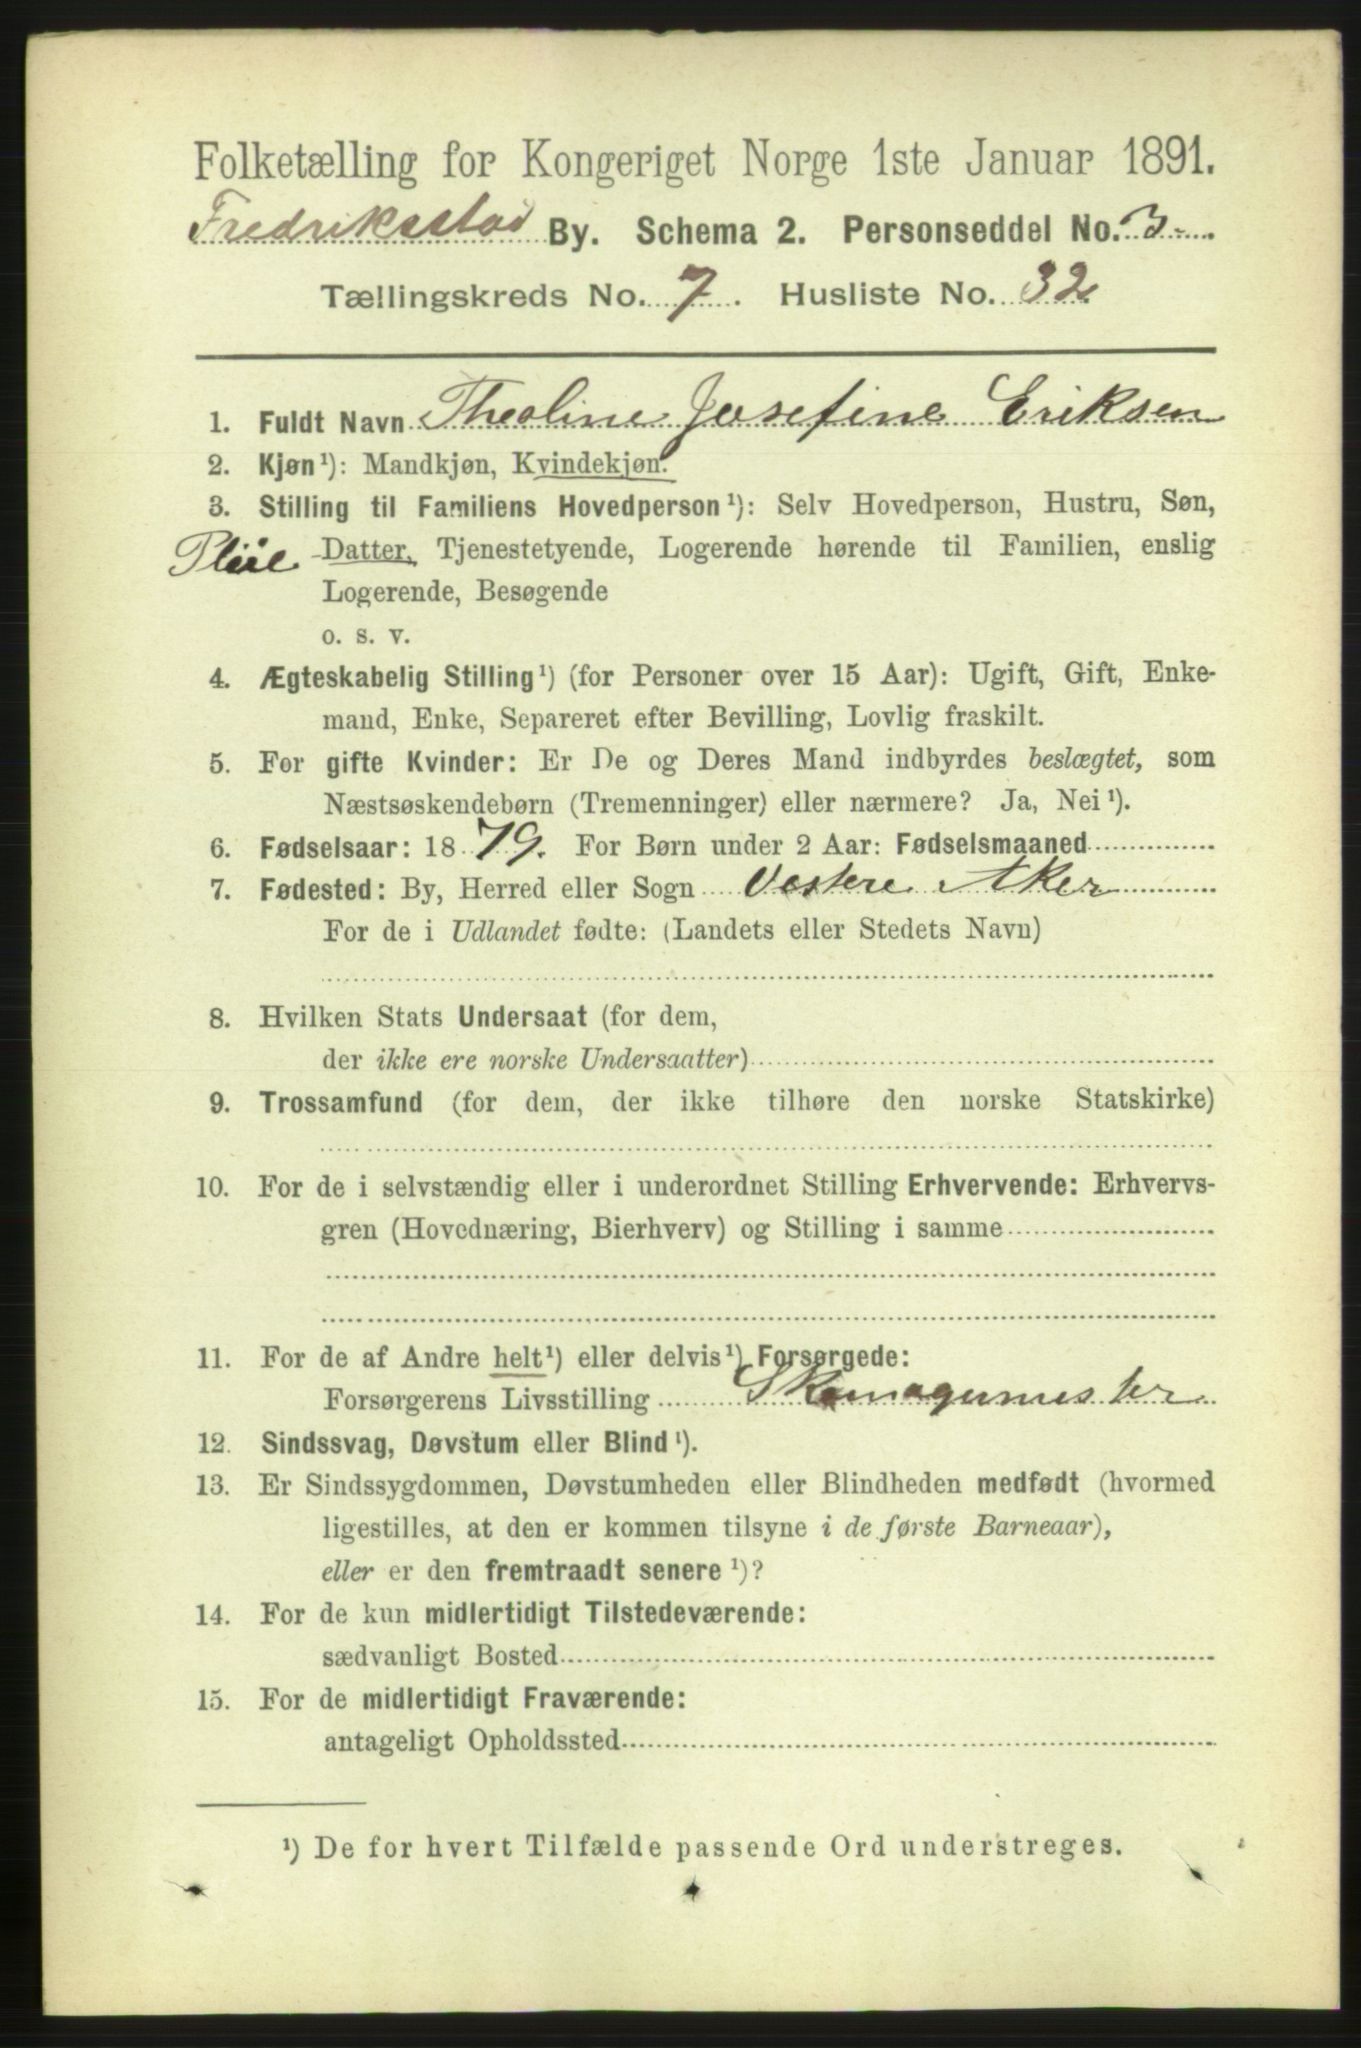 Folketælling for Kongeriget Norge 1ste Januar 1891.
Fredriksstad By. Schema 2. Personseddel No. 3
Tællingskreds No. 7. Husliste No. 32
1. Fuldt Navn Theoline Josefine Eriksen
2. Kjøn¹): Mandkjøn, Kvindekjøn.
3. Stilling til Familiens Hovedperson¹): Selv Hovedperson, Hustru, Søn,
Pleie Datter, Tjenestetyende, Logerende hørende til Familien, enslig
Logerende, Besøgende
o. s. v.
4. Ægteskabelig Stilling¹) (for Personer over 15 Aar): Ugift, Gift, Enke-
mand, Enke, Separeret efter Bevilling, Lovlig fraskilt.
5. For gifte Kvinder: Er De og Deres Mand indbyrdes beslægtet, som
Næstsøskendebørn (Tremenninger) eller nærmere? Ja, Nei¹).
6. Fødselsaar: 1879. For Børn under 2 Aar: Fødselsmaaned
7. Fødested: By, Herred eller Sogn Vestere Aker
For de i Udlandet fødte: (Landets eller Stedets Navn)
8. Hvilken Stats Undersaat (for dem,
der ikke ere norske Undersaatter)
9. Trossamfund (for dem, der ikke tilhøre den norske Statskirke)
10. For de i selvstændig eller i underordnet Stilling Erhvervende: Erhvervs-
gren (Hovednæring, Bierhverv) og Stilling i samme
11. For de af Andre helt¹) eller delvis¹) Forsørgede:
Forsørgerens Livsstilling Skomagermester
12. Sindssvag, Døvstum eller Blind¹).
13. Er Sindssygdommen, Døvstumheden eller Blindheden medfødt (hvormed
ligestilles, at den er kommen tilsyne i de første Barneaar),
eller er den fremtraadt senere¹)?
14. For de kun midlertidigt Tilstedeværende:
sædvanligt Bosted
15. For de midlertidigt Fraværende:
antageligt Opholdssted
¹) De for hvert Tilfælde passende Ord understreges.